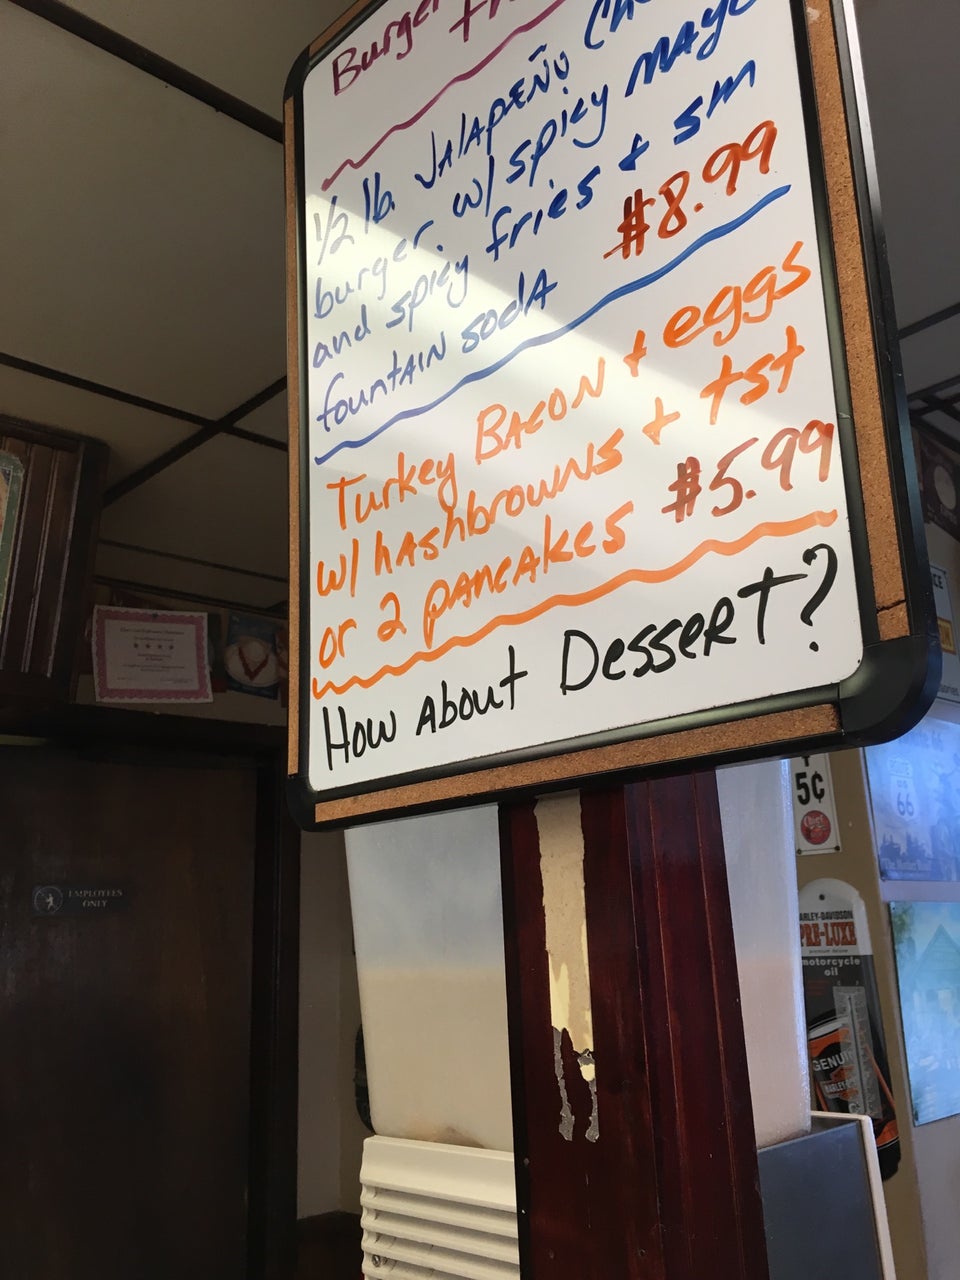 Burger
1/2 lb. JALAPEÑO
burger. w/ spicy MAYO
and spicy fries + sm
fountain soda #8.99
Turkey BACON + eggs
w/ hashbrowns + tst
or 2 pancakes #5.99
How About Dessert?
EMPLOYEES
ONLY
5¢
66
ARLEY-DAVIDSON
PRE-LUXE
motorcycle
oil
GENUI